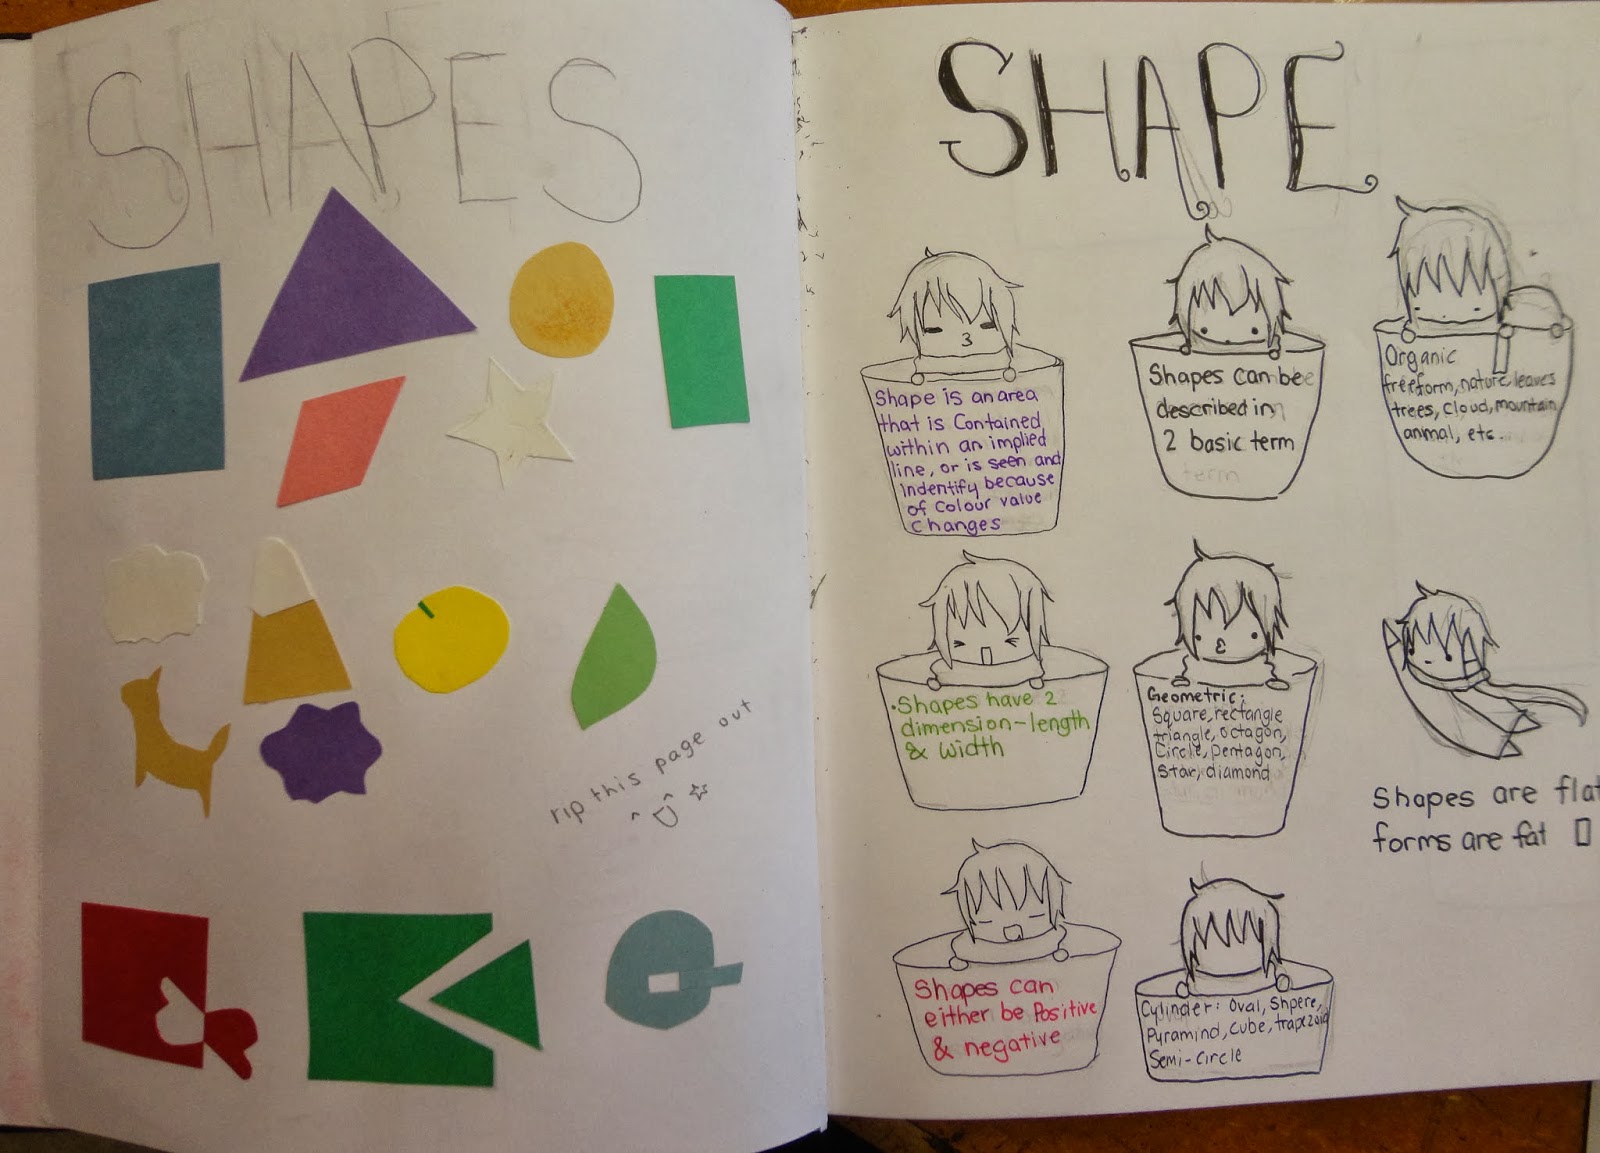 SHAPES
rip this page out
SHAPE
Shape is an area
that is Contained
within an implied
line, or is seen and
indentify because
of Colour value
Changes
Shapes can be
described in
2 basic term
term
Organic
freeform, nature, leaves
trees, cloud, mountain
animal, etc.
·Shapes have 2
dimension-length
& width
Geometric:
Square, rectangle
triangle, octagon,
Circle, pentagon,
Star, diamond
Shapes are flat
forms are fat
Shapes can
either be Positive
& negative
Cylinder: Oval, Shpere,
Pyramind, Cube, trapezoid
Semi-circle